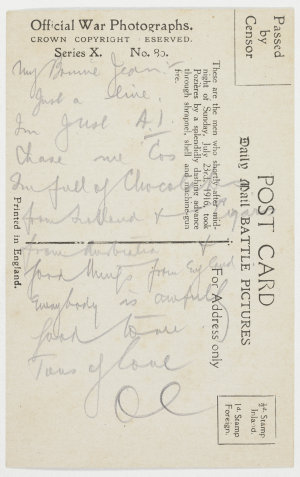 Official War Photographs.
CROWN COPYRIGHT ESERVED.
Series X. No. 80.
Passed
by
Censor
These are the men who shortly after mid-
night of Sunday, July 23rd, 1916, took
Pozières by a splendidly dashing advance
through shrapnel, shell and machine-gun
fire.
POST CARD
Daily Mail BATTLE PICTURES
For Address only
½d. Stamp
Inland.
1d. Stamp
Foreign.
Printed in England.
My Bonnie Jean
Just a line.
I'm just A.1
Chase me
I'm full of Chocolates
from Ireland &
from Australia &
good things from England
Everybody is awfully
good to me
Tons of love